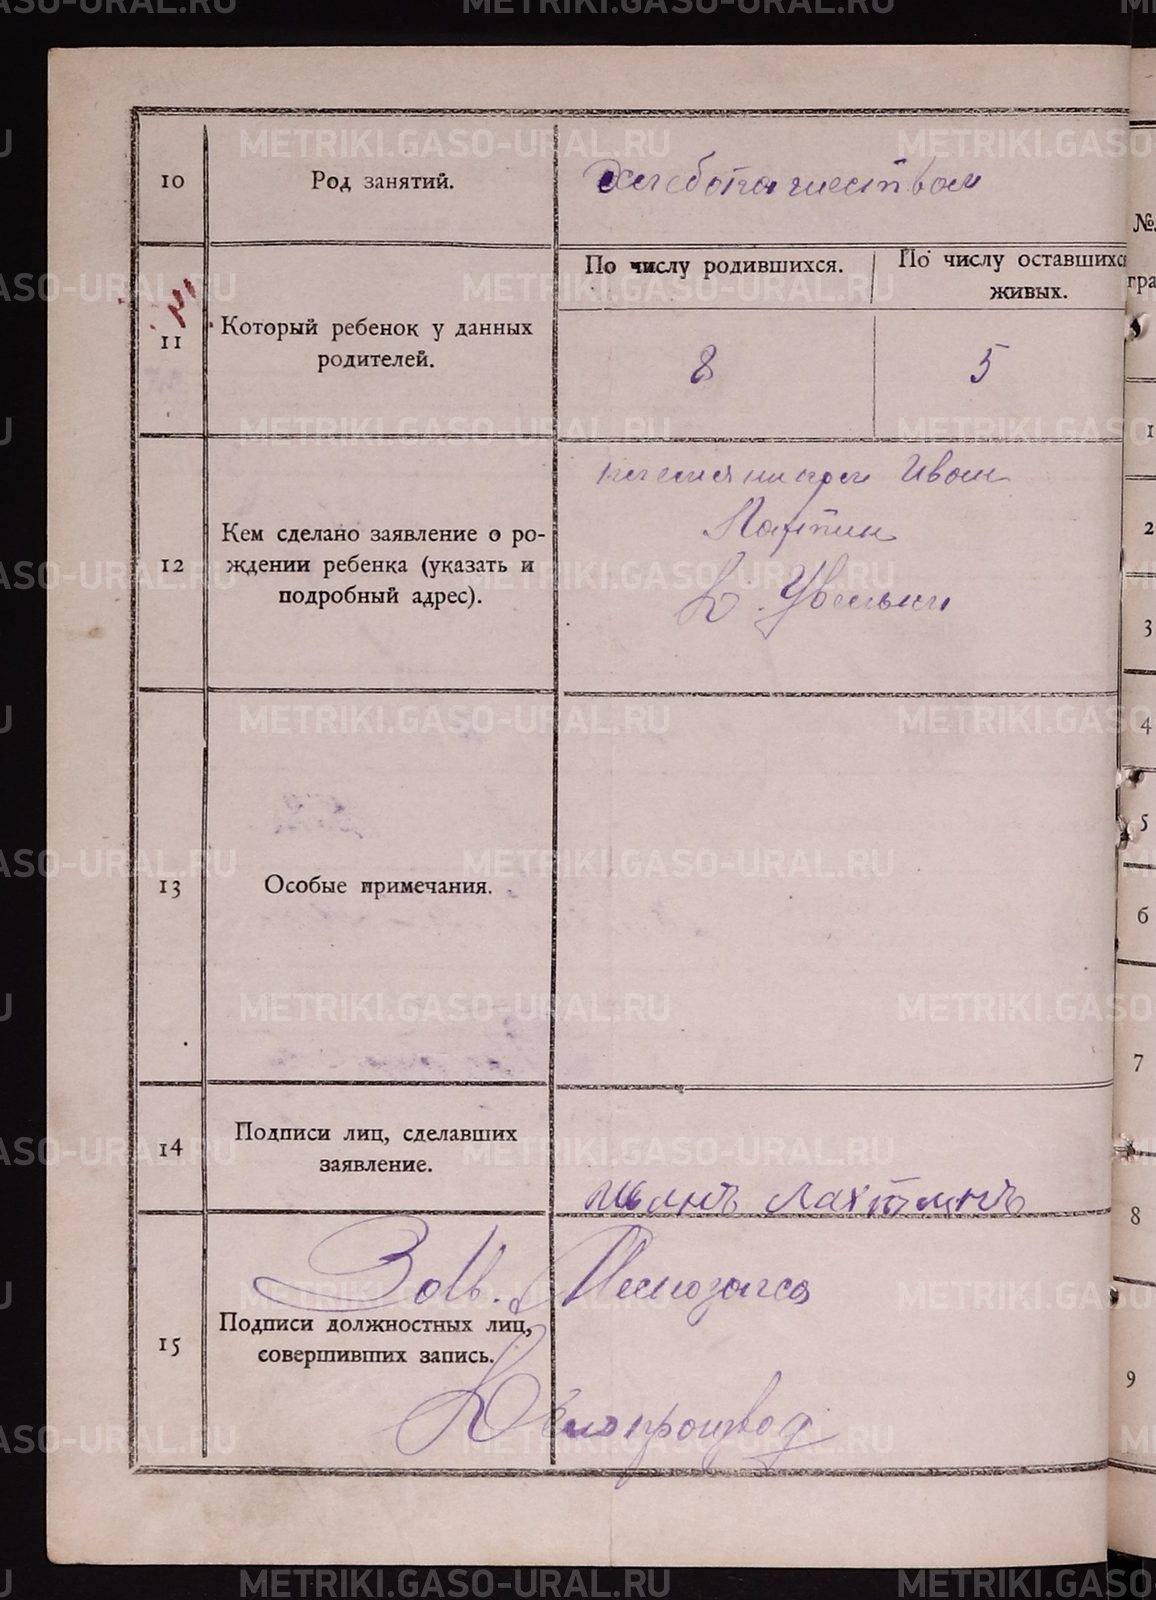 METRIKI.GASO-URAL.RU
10
Род занятий.
Хлебопашеством
11
Который ребенок у данных
родителей.
По числу родившихся.
По число оставшихся
живых.
8
5
12
Кем сделано заявление о ро-
ждении ребенка (указать и
подробный адрес).
Иван
Лаптин
д. Увельки
13
Особые примечания.
14
Подписи лиц, сделавших
заявление.
15
Подписи должностных лиц,
совершивших запись.
Зав.
Делопроизвод
№
гра
1
2
3
4
5
6
7
8
9